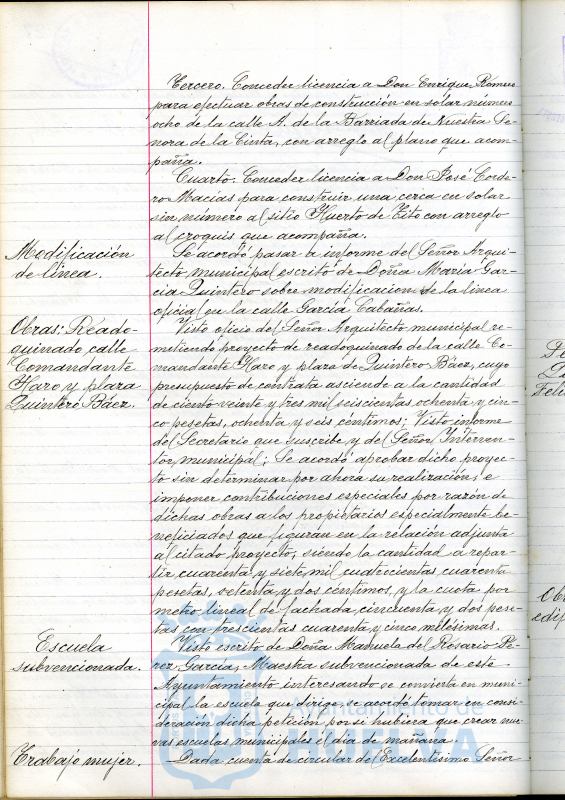 Tercero. Conceder licencia a Don Enrique Romero
para efectuar obras de construcción en solar número
ocho de la calle A. de la Barriada de Nuestra Se-
ñora de la Cinta, con arreglo al plano que acom-
paña.
Cuarto. Conceder licencia a Don José Corde-
ro Macías para construir una cerca en solar
sin número al sitio Huerto de Tito con arreglo
al croquis que acompaña.
Modificación
de línea.
Se acordó pasar a informe del Señor Arqui-
tecto municipal escrito de Doña María Gar-
cia Quintero sobre modificacion de la línea
oficial en la calle García Cabañas.
Obras: Reado-
quinado calle
Comandante
Haro y plaza
Quintero Báez.
Visto oficio del Señor Arquitecto municipal re-
mitiendo proyecto de readoquinado de la calle Co-
mandante Haro y plaza de Quintero Báez, cuyo
presupuesto de contrata asciende a la cantidad
de ciento veinte y tres mil seiscientas ochenta y cin-
co pesetas, ochenta y seis céntimos; Visto informe
del Secretario que suscribe y del Señor Interven-
tor municipal; Se acordó aprobar dicho proyec-
to sin determinar por ahora su realización; e
imponer contribuciones especiales por razón de
dichas obras a los propietarios especialmente be-
neficiados que figuran en la relación adjunta
al citado proyecto, siendo la cantidad a repar-
tir cuarenta y siete mil cuatrocientas cuarenta
pesetas, setenta y dos centimos, y la cuota por
metro lineal de fachada, cincuenta y dos pese-
tas con trescientas cuarenta y cinco milesimas.
Escuela
subvencionada.
Visto escrito de Doña Manuela del Rosario Pe-
rez Garcia, Maestra subvencionada de este
Ayuntamiento interesando se convierta en muni-
cipal la escuela que dirige, se acordó tomar en consi-
deración dicha petición por si hubiera que crear nue-
vas escuelas municipales el día de mañana.
Trabajo mujer.
Dada cuenta de circular del Excelentísimo Señor
Ayuntamiento de
HUELVA